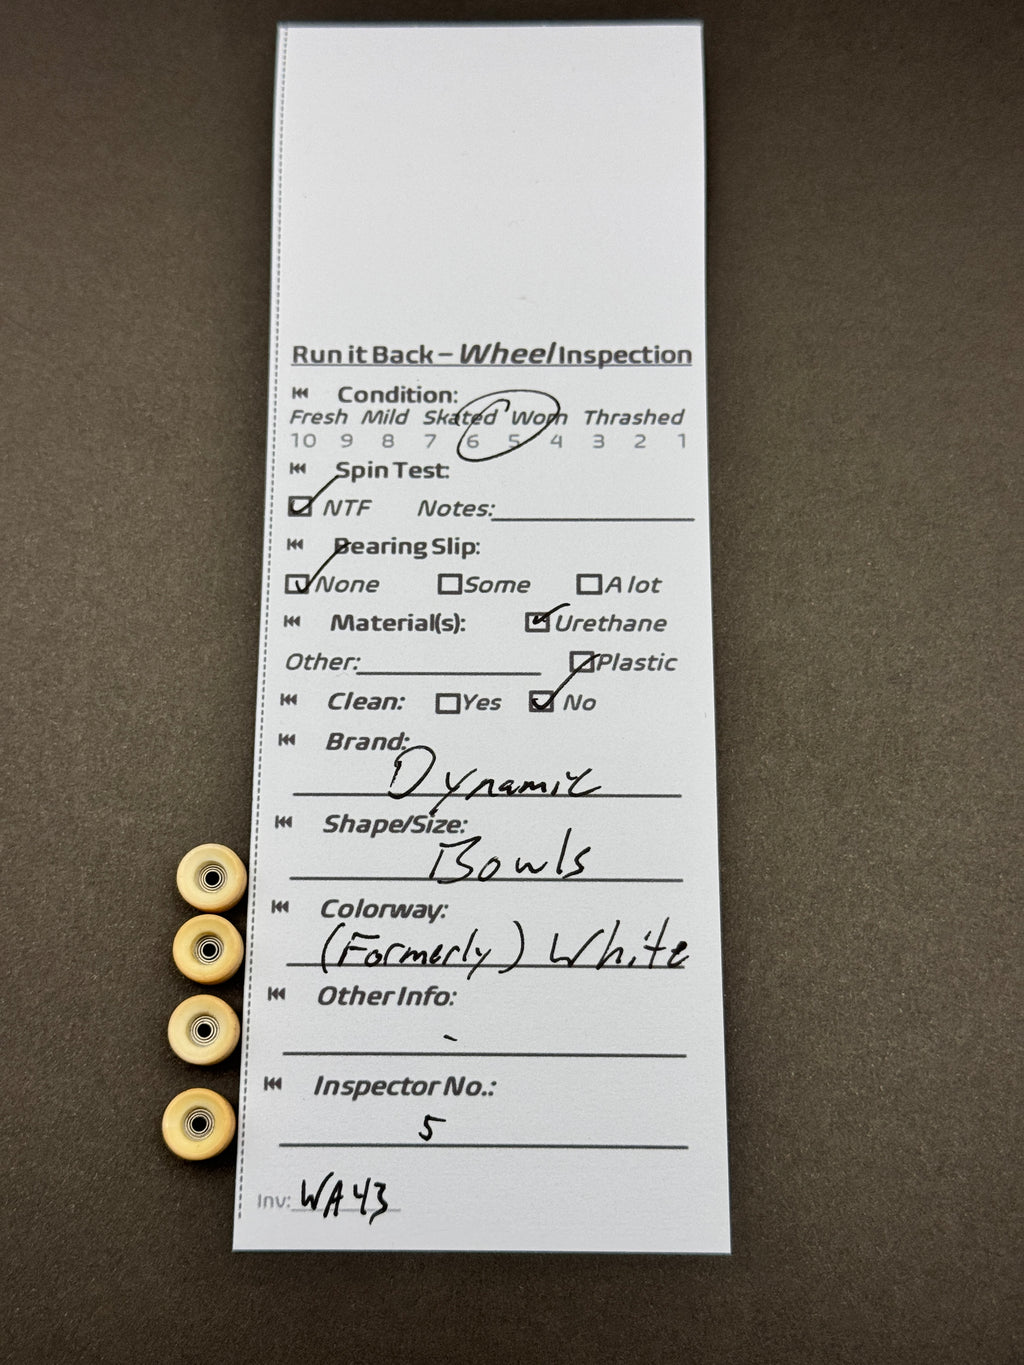 Run it Back – Wheel Inspection
Condition:
Fresh Mild Skated Worn Thrashed
10 9 8 7 6 5 4 3 2 1
Spin Test:
NTF Notes:
Bearing Slip:
None Some A lot
Material(s): Urethane
Other: Plastic
Clean: Yes No
Brand:
Dynamic
Shape/Size:
Bowls
Colorway:
(Formerly) White
Other Info:
-
Inspector No.:
5
Inv: WA43